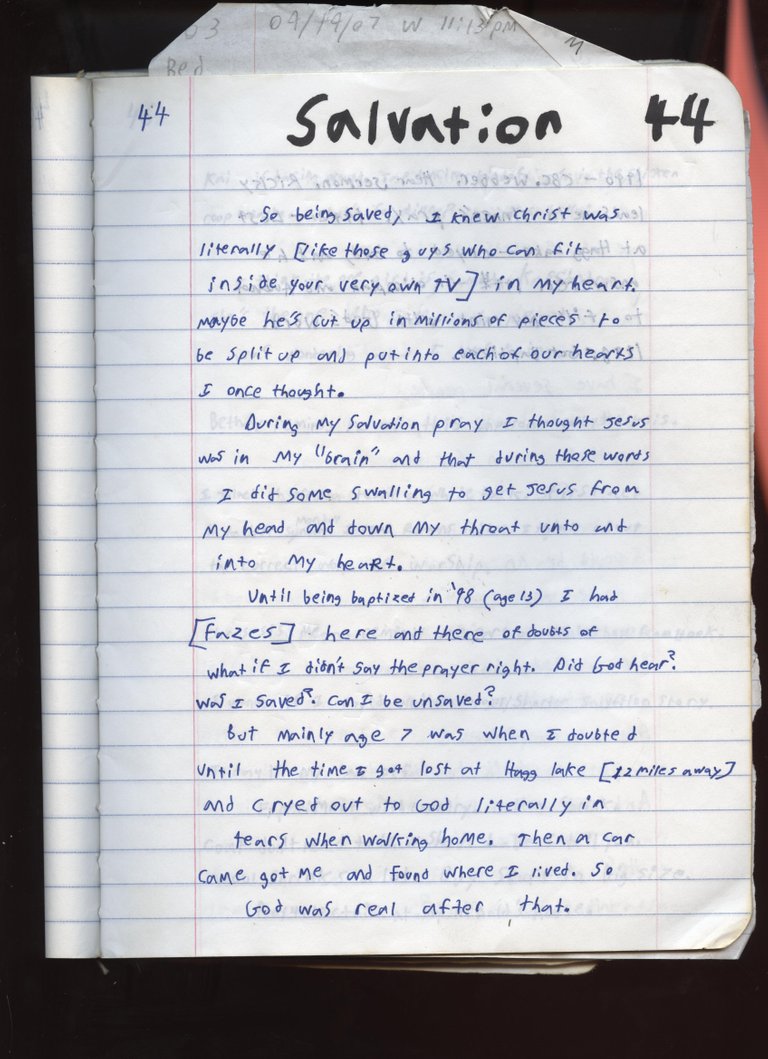 03 09/19/07 W 11:13 pm
Bed
44 Salvation 44
So being saved, I knew Christ was
literally [like those guys who can fit
inside your very own TV] in my heart,
maybe he's cut up in millions of pieces to
be split up and put into each of our hearts
I once thought.
During my salvation pray I thought Jesus
was in my "brain" and that during these words
I did some swalling to get Jesus from
my head and down my throat unto and
into my heart.
Until being baptized in '98 (age 13) I had
[Fazes] here and there of doubts of
what if I didn't say the prayer right. Did God hear?
was I saved? Can I be unsaved?
But mainly age 7 was when I doubted
until the time I got lost at Hagg lake [12 miles away]
and cryed out to God literally in
tears when walking home. Then a car
came got me and found where I lived. So
God was real after that.